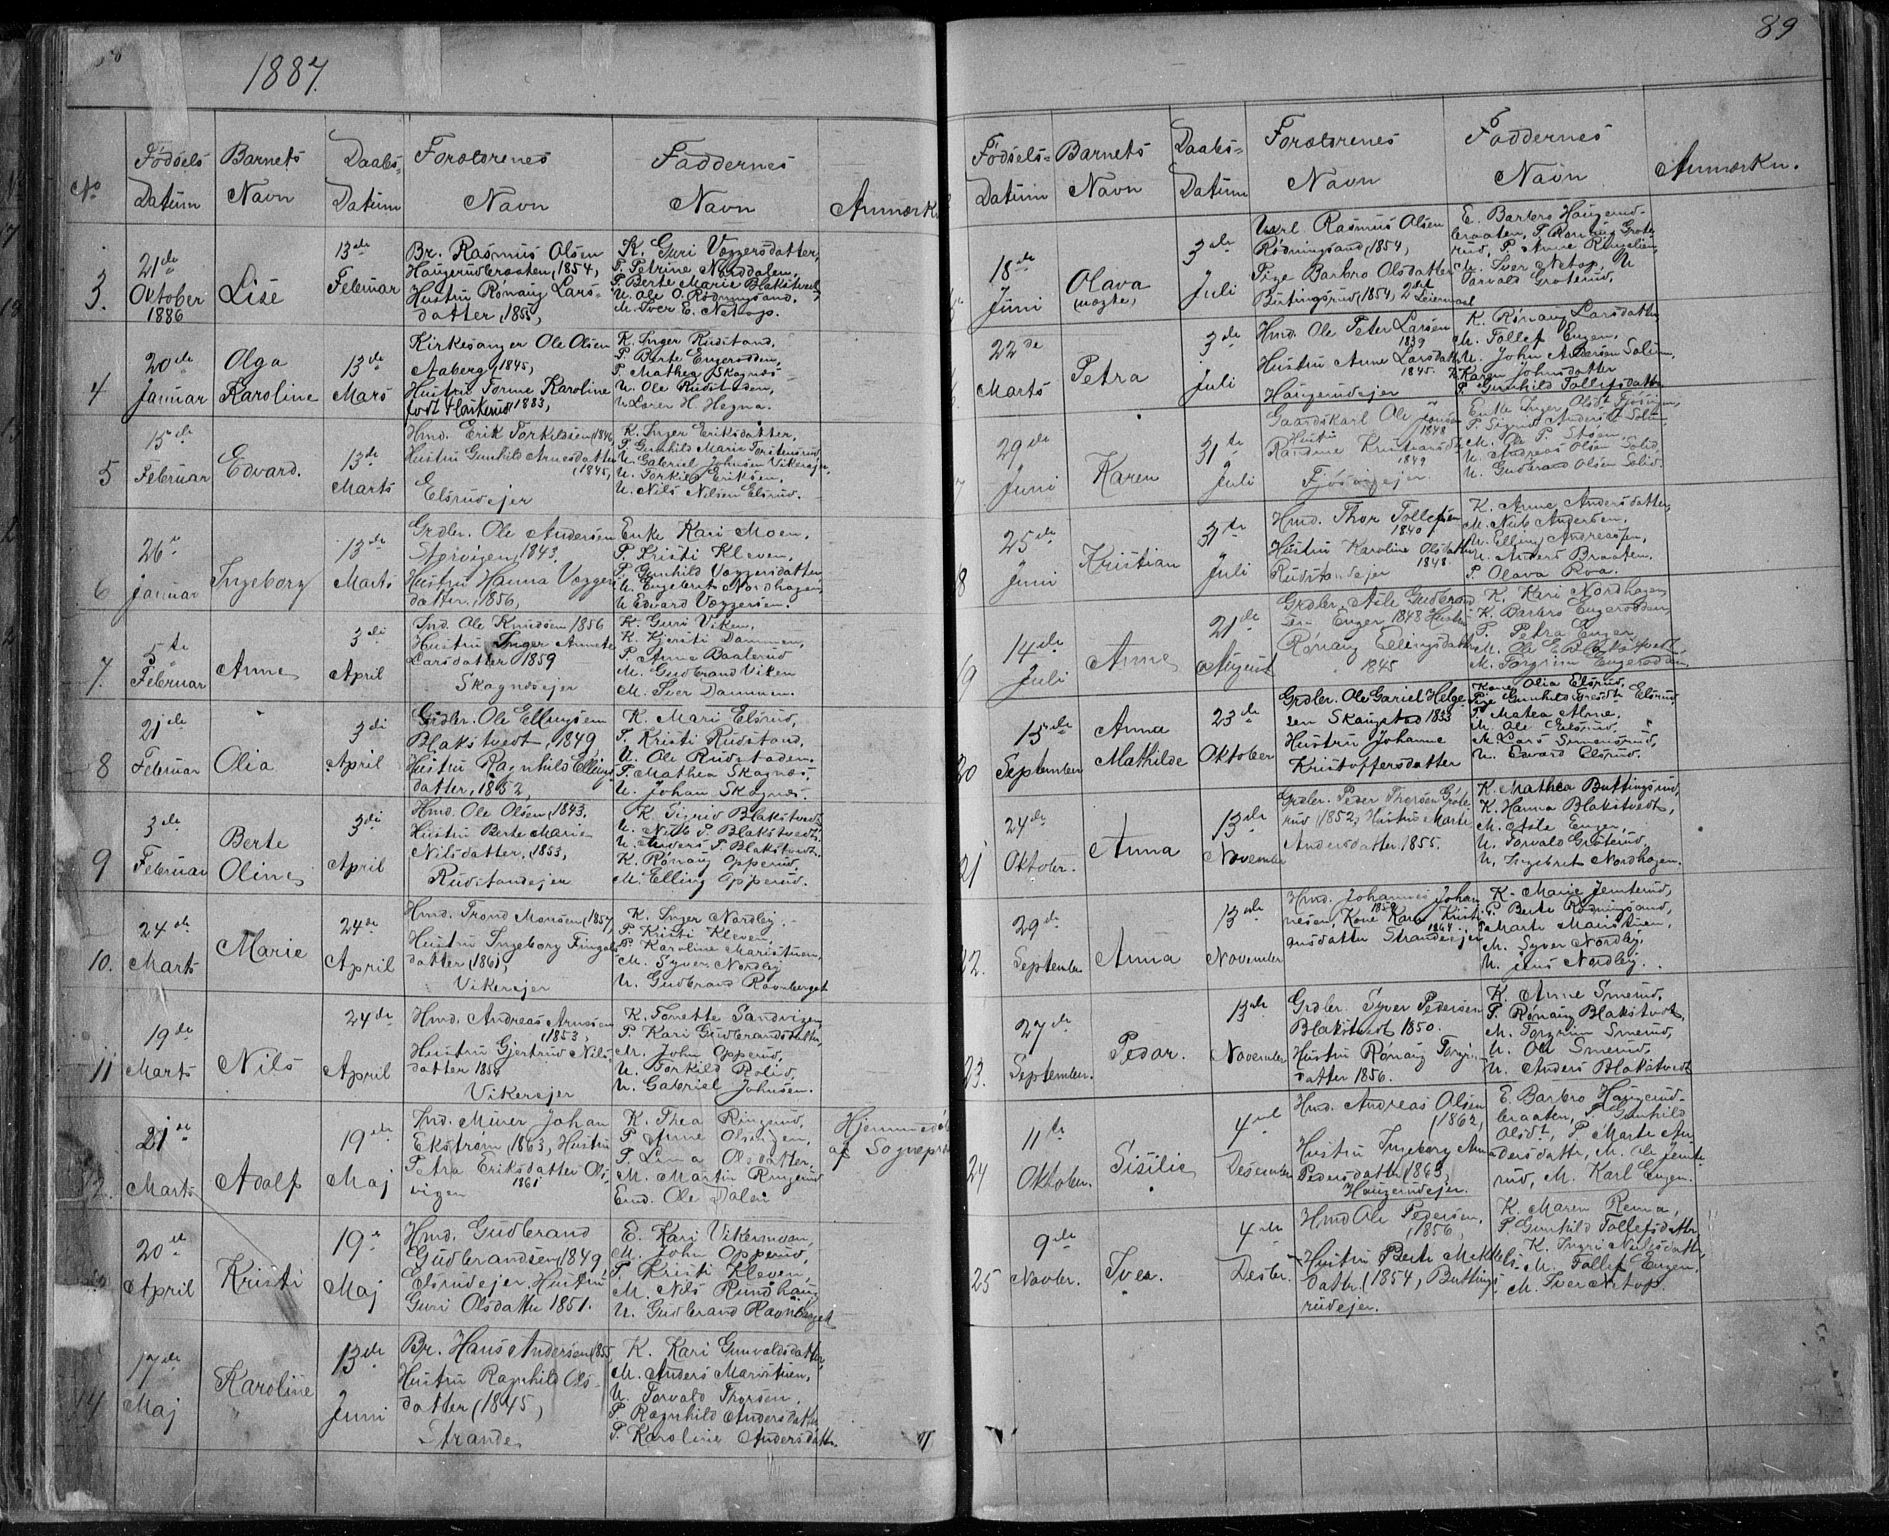 1887.
No
Fødsels Datum
Barnets Navn
Daabs- Datum
Forældrenes Navn
Faddernes Navn
Anmærk
3.
21de Oktober 1886
Lise
13de Februar
Br. Rasmus Olsen
Haugerudbraaten, 1854,
Hustru Rønaug Lars-
datter, 1855,
K. Guri Voggersdatter,
P. Petrine Norddalen,
P. Berte Marie Blakstvedt,
U. Ole O. Rødningsand,
M. Iver E. Netop.
4
20de Januar
Olga Karoline
13de Mars
Kirkesanger Ole Olsen
Aaberg, 1845,
Hustru Karoline
født 1883,
K. Inger Rudstand,
P. Berte Engerodden,
P. Mathea Skagnæs
U. Ole Rudstaden,
U. Loren H. Hegna.
5
15de Februar
Edvard.
13de Marts
Hmd. Erik Torkildsen, 1846,
Hustru Gunhild Arnesdatter
, 1845,
Elsrudejer
K. Inger Eriksdatter,
P. Gunhild Marie Torstensrud,
U. Gabriel Johnsen Vikersejer,
U. Torkild Eriksen,
U. Nils Nilsen Elsrud.
6
26de Januar
Ingeborg
13de Marts
Grdbr. Ole Andersen
Storvigen, 1843.
Hustru Hanna Voggers
datter, 1856,
Enke Kari Moen,
P. Kristi Kleven,
P. Gunhild Voggersdatter
U. Engebret Nordhagen,
U. Edvard Voggersen.
7.
5te Februar
Anne
3di April
Ind. Ole Knudsen 1856
Hustru Inger Annete
Larsdatter 1859
Skagnesejer
K. Guri Viken,
K. Kjersti Dammen,
P. Anne Baalerud
M. Gudbrand Viken
M. Iver Dammen.
8
21de Februar
Olia
3di April
Grdbr. Ole Ellingsen
Blakstvedt, 1849,
Hustru Ragnhild Ellings
datter, 1852,
K. Mari Elsrud,
P. Kristi Rudstand,
U. Ole Rudstaden.
P. Mathea Skagnæs,
U. Johan Skagnæs.
9
3de Februar
Berte Oline
3di April
Hmd. Ole Olsen, 1843.
Hustru Berte Marie
Nilsdatter, 1853,
Rudstandejer
K. Sigrid Blakstvedt
U. Nils P. Blakstvedt,
U. Anders P. Blakstvedt.
K. Rønaug Opperud,
M. Elling Opperud.
10.
24de Marts
Marie
24de April
Hmd. Trond Monsen, 1854,
Hustru Ingeborg Fingals
datter, 1861,
Vikersejer
K. Inger Nordby.
P. Kristi Kleven,
P. Karoline Maristuen,
M. Syver Nordby
U. Gudbrand Ravnberget
11
19de Marts
Nils
24de April
Hmd. Andreas Arnesen
1853,
Hustru Gjertrud Nils-
datter 1858
Vikersejer
K. Tonette Sandvigen
P. Kari Gudbrandsdatter,
M. John Opperud,
U. Torkild Rolid,
U. Gabriel Johnsen.
21de Marts
Adolf
19de Maj
Ind. Murer Johan
Ekstrøm, 1863, Hustru
Petra Eriksdatter Ols-
vigen 1861
K. Thea Ringerud,
P. Anne Olsvigen,
P. Lina Olsdatter,
M. Martin Ringerud
Emd. Ole Dalen
Hjemmedøbt
af Sognepre
20de April
Kristi
19de Maj
Hmd. Gudbrand
Gudbrandsen, 1849,
Elsrudejer Hustru
Guri Olsdatter 1851.
E. Kari Vikermoen,
M. John Opperud,
P. Kristi Kleven,
M. Nils Rundhaug
U. Gudbrand Ravnberget
14
17de Maj
Karoline
13de Juni
Br. Hans Andersen, 1855,
Hustru Ragnhild Ols-
datter, (1845,
Strande
K. Kari Gunvaldsdatter,
M. Anders Maristuen,
U. Torvald Thorsen
P. Ragnhild Andersdatter
P. Karoline Andersdatter.
89
Fødsels- Datum
Barnets Navn
Daabs- Datum
Forældrenes Navn
Faddernes Navn
Anmærkn.
18de Juni
Olava
(uægte)
3de Juli
Rasmus Olsen
Rødningsand, 1854,
Pige Barbro Olsdatter
Buttingsrud, 1854, 2det Leiermaal
E. Barbro Haugerud-
braaten, P. Rønaug Grote-
rud, P. Anne Ringelien,
M. Iver Netop, U.
Torvald Groterud.
22de Marts
Petra
3de Juli
Hmd. Ole Peter Larsen
1839
Hustru Anne Larsdatter
1845.
Haugerudejer
K. Rønaug Larsdatter,
M. Tollef Engen,
U. John Andersen Solum,
K. Karen Johnsdatter
P. Gunhild Tollefsdatter
29de Juni
Karen
31te Juli
Gaardskarl Ole
Hustru 1848
Randine Kristiansdtr
1849
Fjøsvigejer
Enke Inger Olsdtr Fjøsvigen,
P. Sigrid Andersdtr Solum,
M. Ole P. Støen
U. Andreas Olsen Solid,
U. Gudbrand Olsen Solid.
8
25de Juni
Kristian
31te Juli
Hmd. Thor Tollefsen
1840
Hustru Karoline Olsdatter
1848.
Rudstandejer
K. Anne Andersdatter,
M. Nub Andersen,
U. Elling Andreassen,
U. Anders Braaten.
P. Olava Roa.
9
14de Juli
Anne
21de August
Grdbr. Asle Gudbrand
sen Enger 1848 Hustru
Rønaug Ellingsdatter
1845
K. Kari Nordhagen
K. Barbro Engerodden,
P. Petra Enger
M. Ole E. Blakstvedt
M. Torgrim Engerodden
20
15de September
Anna Mathilde
23de Oktober
Grdbr. Ole Gariel Helge
sen Skaugstad 1833
Hustru Johanne
Kristoffersdatter
Kone Olia Elsrud,
Pige Gunhild Elsrud,
P. Matea Alme,
M. Ole Elsrud,
M. Lars Simensrud,
U. Edvard Elsrud.
21
24de Oktober.
Anna
13de November
Grdbr. Peder Thorsen Grote
rud, 1852, Hustru Marte
Andersdatter 1855.
K. Mathea Buttingsrud,
K. Hanna Blakstvedt,
M. Asle Enger,
U. Torvald Groterud,
U. Ingebret Nordhagen.
22.
29de September
Anna
13de November
Hmd. Johannes Johan
nesen, 1859 Kone Karen Kristi-
ansdatter 1864. Strandeejer
K. Marie Jemterud,
P. Berte Rødningsand,
P. Marte Maristuen,
M. Syver Nordby.
U. Jens Nordby.
23.
27de September.
Peder.
13de November
Grdbr. Syver Pedersen
Blakstvedt 1850.
Hustru Rønaug Torgri
datter 1856.
K. Anne Smerud,
P. Rønaug Blakstvedt,
M. Torgrim Smerud,
U. Ole Smerud,
U. Anders Blakstvedt
24
11te Oktober.
Sisilie
4de Desember
Hmd. Andreas Olsen
(1862,
Hustru Ingeborg Ann
Pedersdatter, 1863,
Haugerudejer.
E. Barbro Haugerud-
braaten, P. Gunhild
Olsdt, P. Marte An-
dersdatter, M. Ole Jemte-
rud, M. Karl Engen.
25
9de Novbr.
Iver.
4de Desbr.
Hmd Ole Pedersen,
1856,
Hustru Berte Mikkels-
datter (1854, Buttings-
rudejer.
K. Maren Rema,
P. Gunhild Tollefsdatter
K. Ingri Nielsdatter,
M. Tollef Engen,
M. Iver Netop.